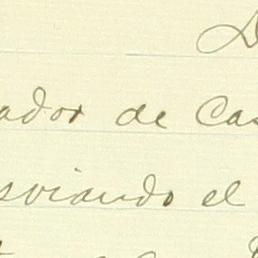 D
ador de Cas
sviando el